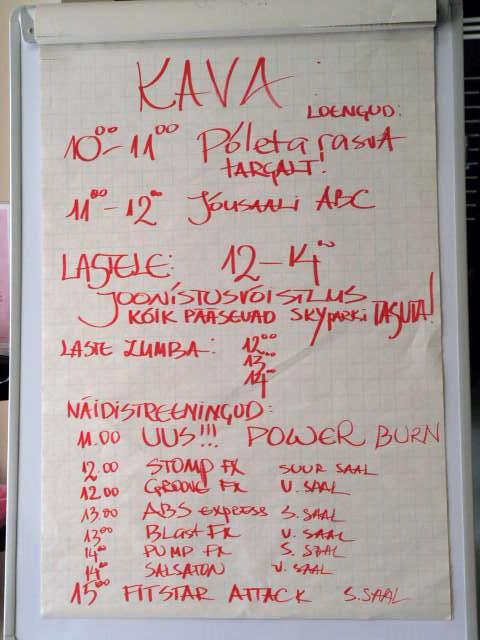 KAVA:
LOENGUD:
10⁰⁰-11⁰⁰ Põleta rasva
TARGALT!
11⁰⁰-12⁰⁰ Jõusaali ABC
LASTELE: 12-14⁰⁰
JOONISTUSVÕISTLUS
KÕIK PÄÄSEVAD SKYPARKi TASUTA!
LASTE ZUMBA: 12⁰⁰
13⁰⁰
14⁰⁰
NÄIDISTREENINGUD:
11.00 UUS!!! POWER BURN
12.00 STOMP FX SUUR SAAL
12.00 GROOVE FX V. SAAL
13.00 ABS express S. SAAL
13⁰⁰ BLast FX V. SAAL
14⁰⁰ PUMP FX S. SAAL
14⁰⁰ SALSATON V. SAAL
15⁰⁰ FITSTAR ATTACK S. SAAL